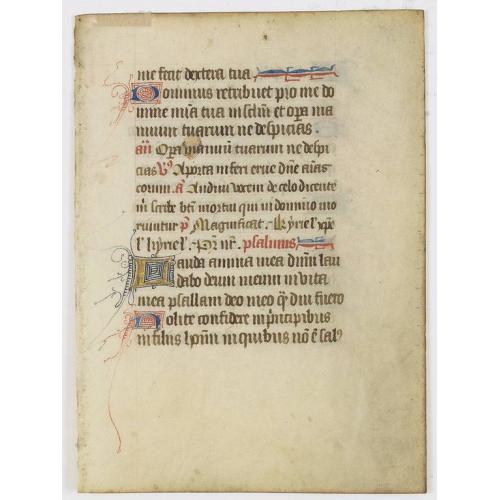 me fecit dextera tua
Dominus retribuet pro me do
mine mia tua in sclm et opa ma
nuum tuarum ne despicias.
an Opa manuu tuarum ne despi
cias V9 A porta inferi erue dne aias
eorum. a Audiui vocem de celo dicente
m scribe bti mortui qui in domino mo
riuntur p Magnificat. kyriel xpe
l kyriel. Pr nr. psalmus
Lauda anima mea dnm lau
dabo deum meum in vita
mea psallam deo meo q diu fuero
Nolite confidere in pncipibus
in filiis homi in quibus no e sal9